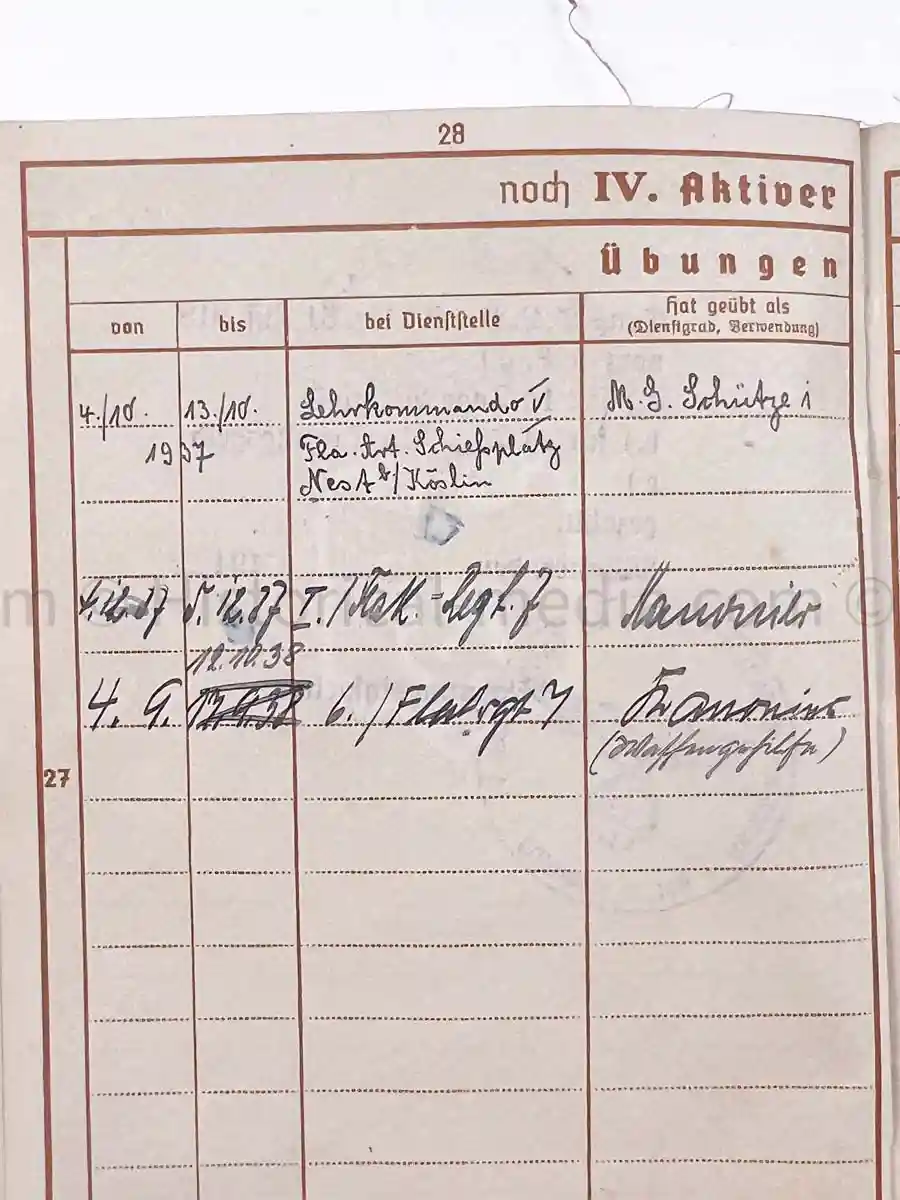 28
noch IV. Aktiver
Übungen
von bis bei Dienststelle Hat geübt als
(Dienstgrad, Verwendung)
4./10. 13./10. Lehrkommando V M. G. Schütze i
1937 Fla. Art. Schießplatz
Nest b/Köslin
4.12.37 5.12.37 I./Flak.-Regt. 7 Kanonier
12.10.38
4. 9. 6./Flakrgt 7 Kanonier
(Waffengehilfe)
27